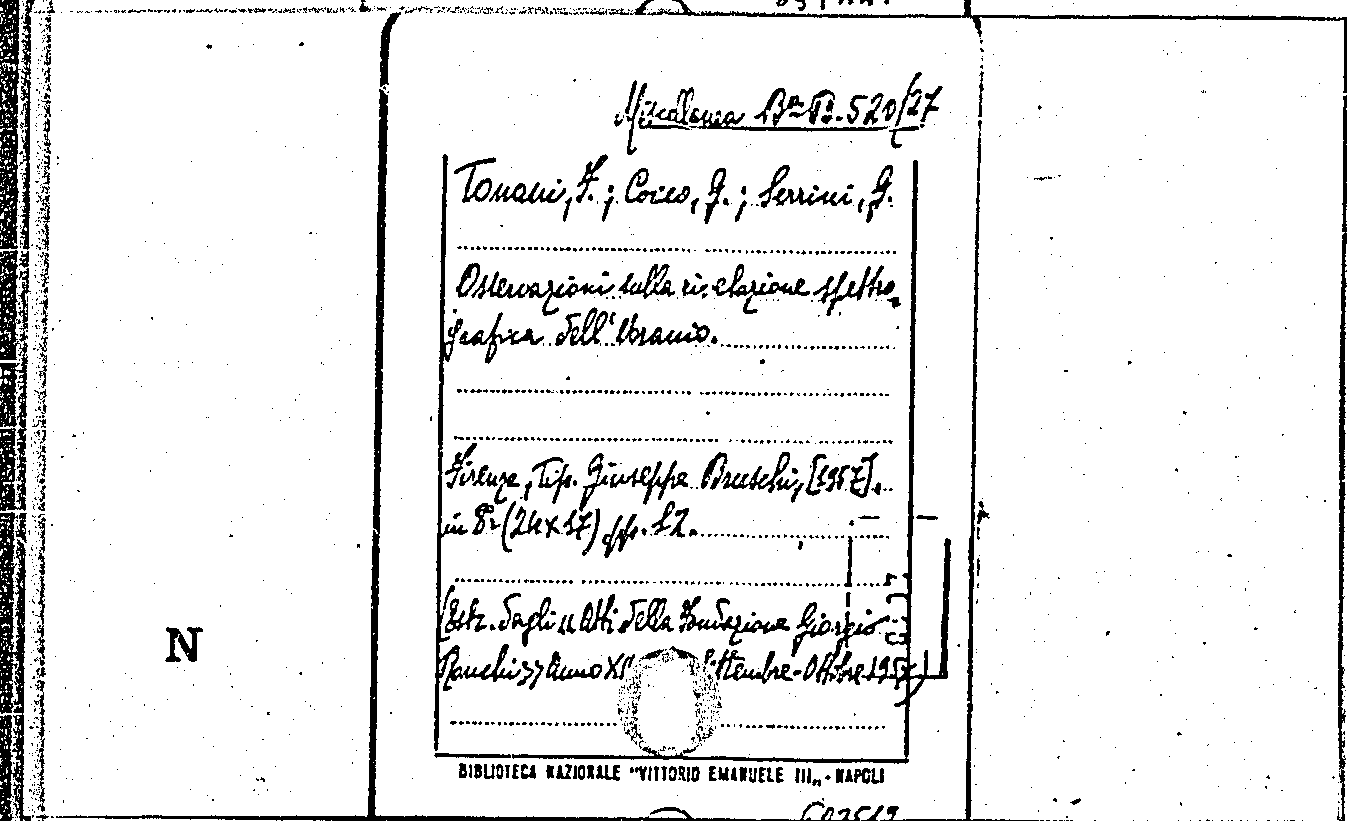 Miscellanea Bª P. 520/27
Tonani, F.; Cocco, G.; Serrini, G.
Osservazioni sulla rivelazione spettro-
grafica dell'Uranio.
Firenze, Tip. Giuseppe Bruschi, [1957].
in 8º (24x17) pp. 12.
(Estr. dagli "Atti della Fondazione Giorgio
Ronchi" Anno XI Settembre-Ottobre 1957)
N
BIBLIOTECA NAZIONALE "VITTORIO EMANUELE III" - NAPOLI